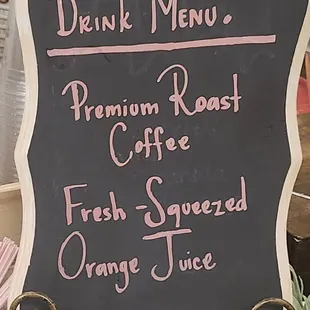 Drink Menu.
Premium Roast
Coffee
Fresh-Squeezed
Orange Juice